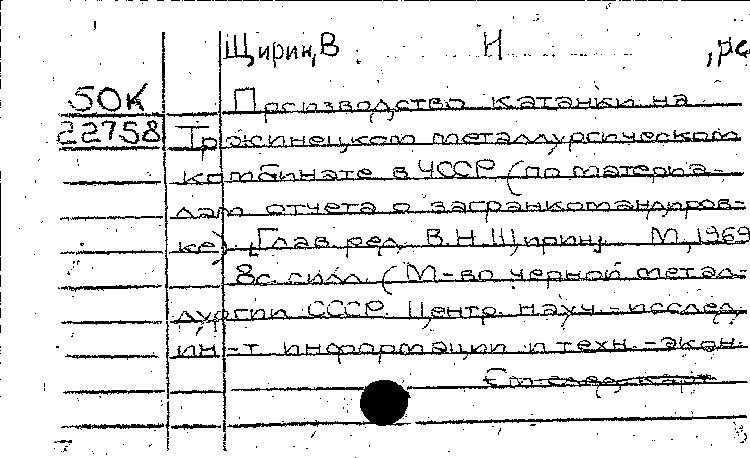 Щирин, В И , ре
50К Производство катанки на
22758 Тржинецком металлургическом
комбинате в ЧССР (по материа-
лам отчета о загранкомандиров-
ке) [Глав. ред. В.Н. Щирин]. М., 1969
8с. с илл. (М-во черной метал-
лургии СССР. Центр. науч.-исслед.
ин-т информации и техн.-экон.
См след карт